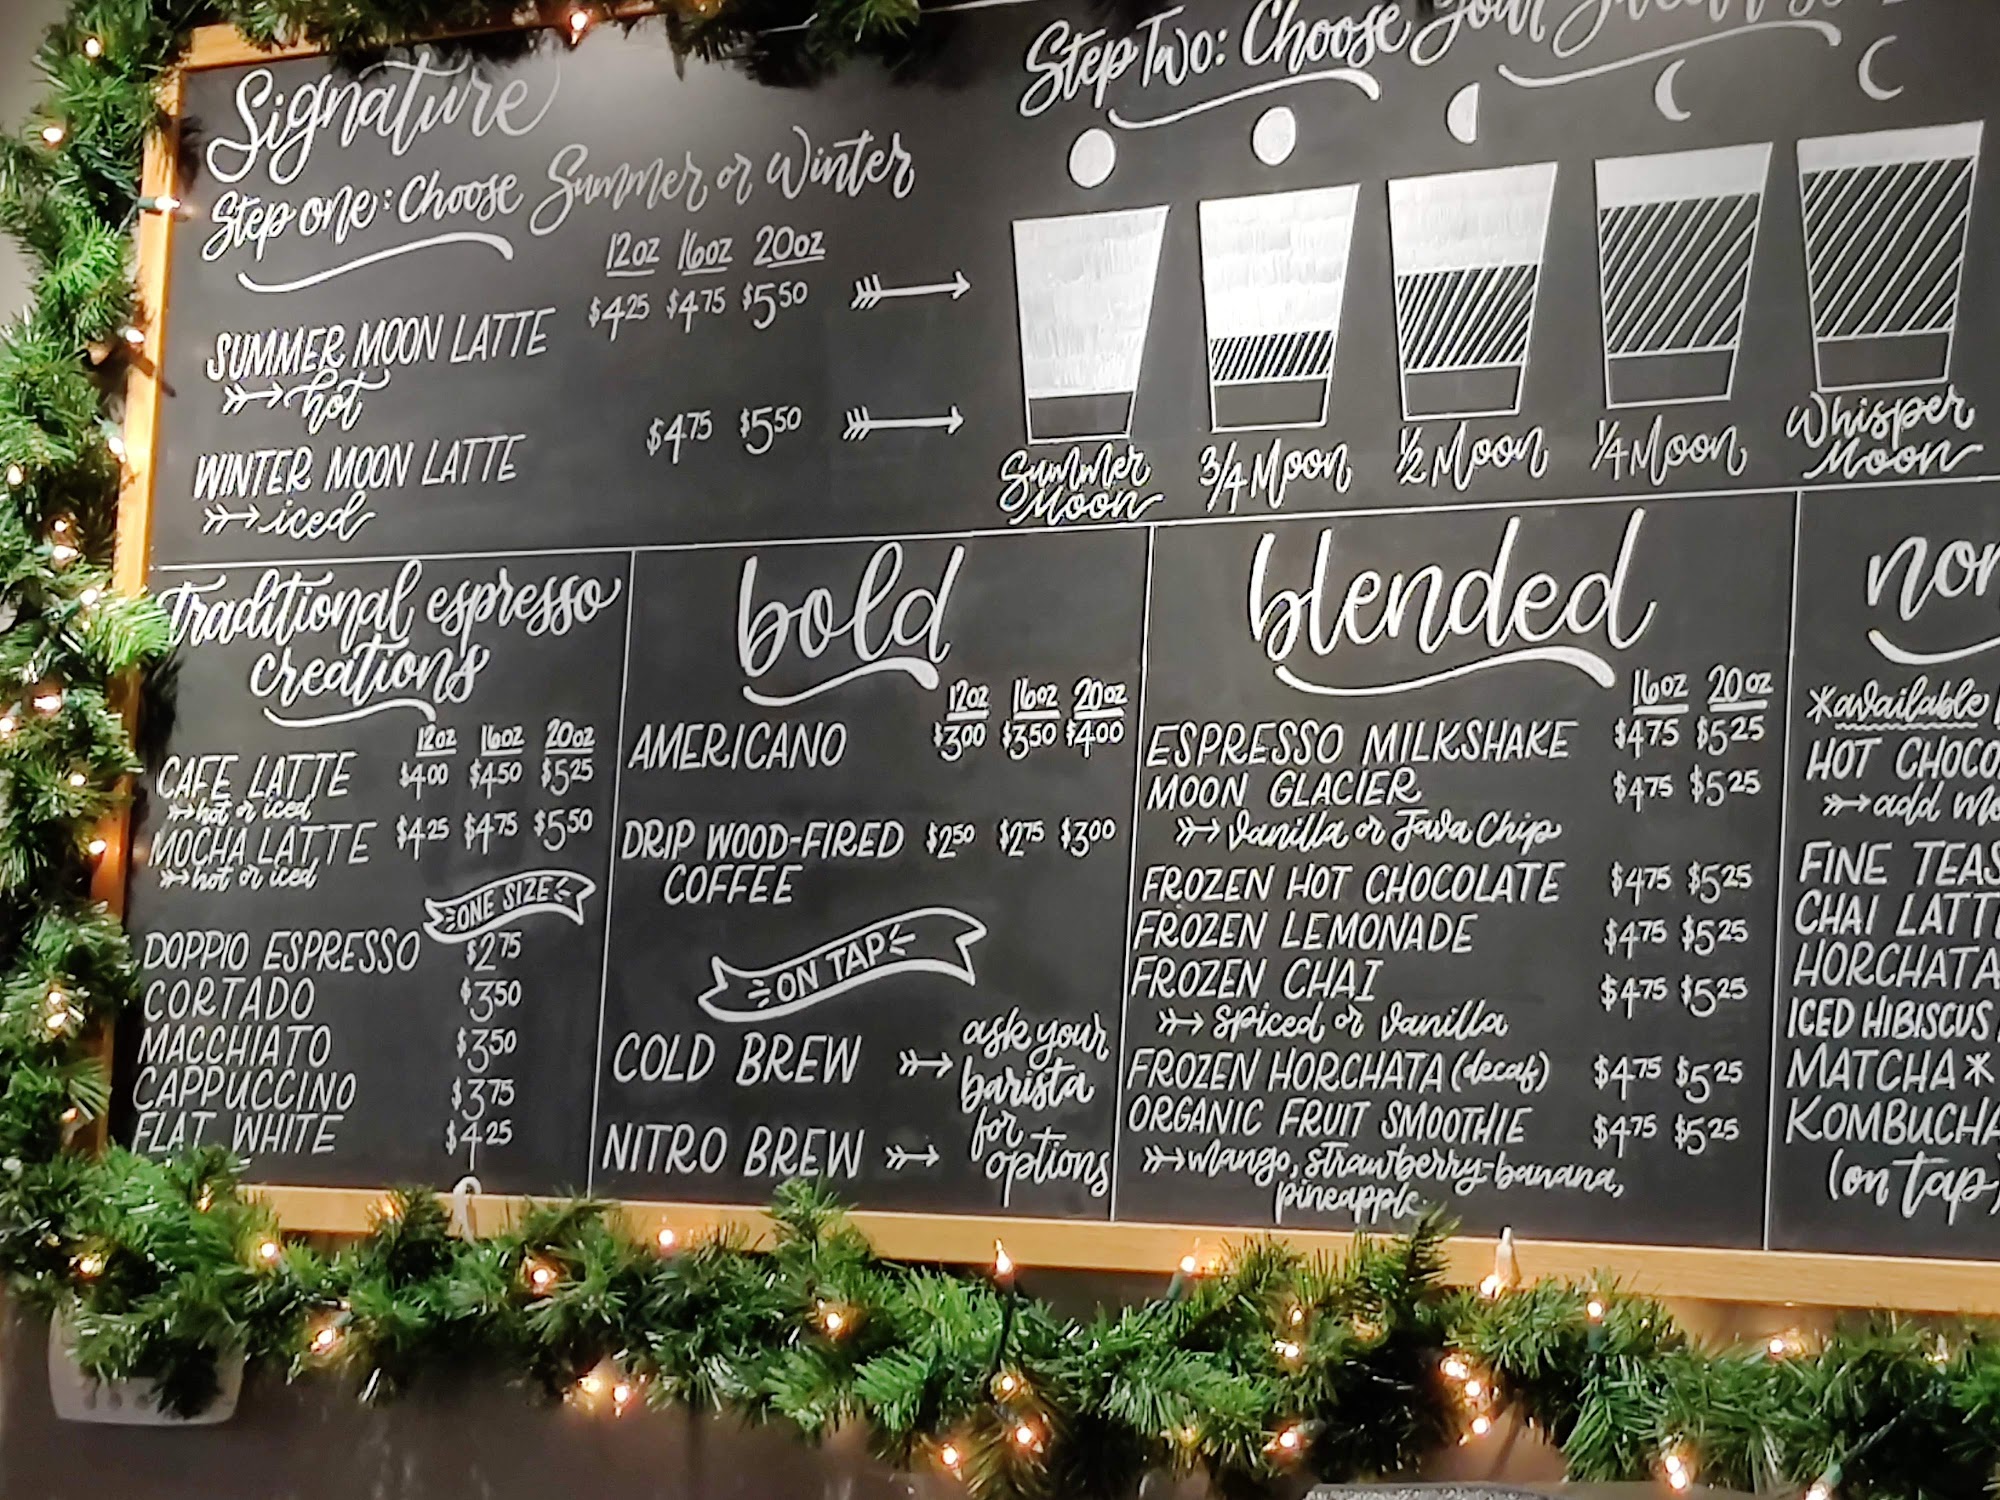 Signature
Step one: Choose Summer or Winter
12oz 16oz 20oz
SUMMER MOON LATTE $4.25 $4.75 $5.50
hot
WINTER MOON LATTE $4.75 $5.50
iced
Step Two: Choose Your
Summer Moon
3/4 Moon
1/2 Moon
1/4 Moon
Whisper Moon
traditional espresso
creations
12oz 16oz 20oz
CAFE LATTE $4.00 $4.50 $5.25
hot or iced
MOCHA LATTE $4.25 $4.75 $5.50
hot or iced
ONE SIZE
DOPPIO ESPRESSO $2.75
CORTADO $3.50
MACCHIATO $3.50
CAPPUCCINO $3.75
FLAT WHITE $4.25
bold
12oz 16oz 20oz
AMERICANO $3.00 $3.50 $4.00
DRIP WOOD-FIRED $2.50 $2.75 $3.00
COFFEE
ON TAP
COLD BREW
NITRO BREW
ask your
barista
for
options
blended
16oz 20oz
ESPRESSO MILKSHAKE $4.75 $5.25
MOON GLACIER $4.75 $5.25
Vanilla or Java Chip
FROZEN HOT CHOCOLATE $4.75 $5.25
FROZEN LEMONADE $4.75 $5.25
FROZEN CHAI $4.75 $5.25
spiced or vanilla
FROZEN HORCHATA (decaf) $4.75 $5.25
ORGANIC FRUIT SMOOTHIE $4.75 $5.25
mango, strawberry-banana,
pineapple
non
*available
HOT CHOCO
add mo
FINE TEAS
CHAI LATT
HORCHATA
ICED HIBISCUS
MATCHA *
KOMBUCHA
(on tap)